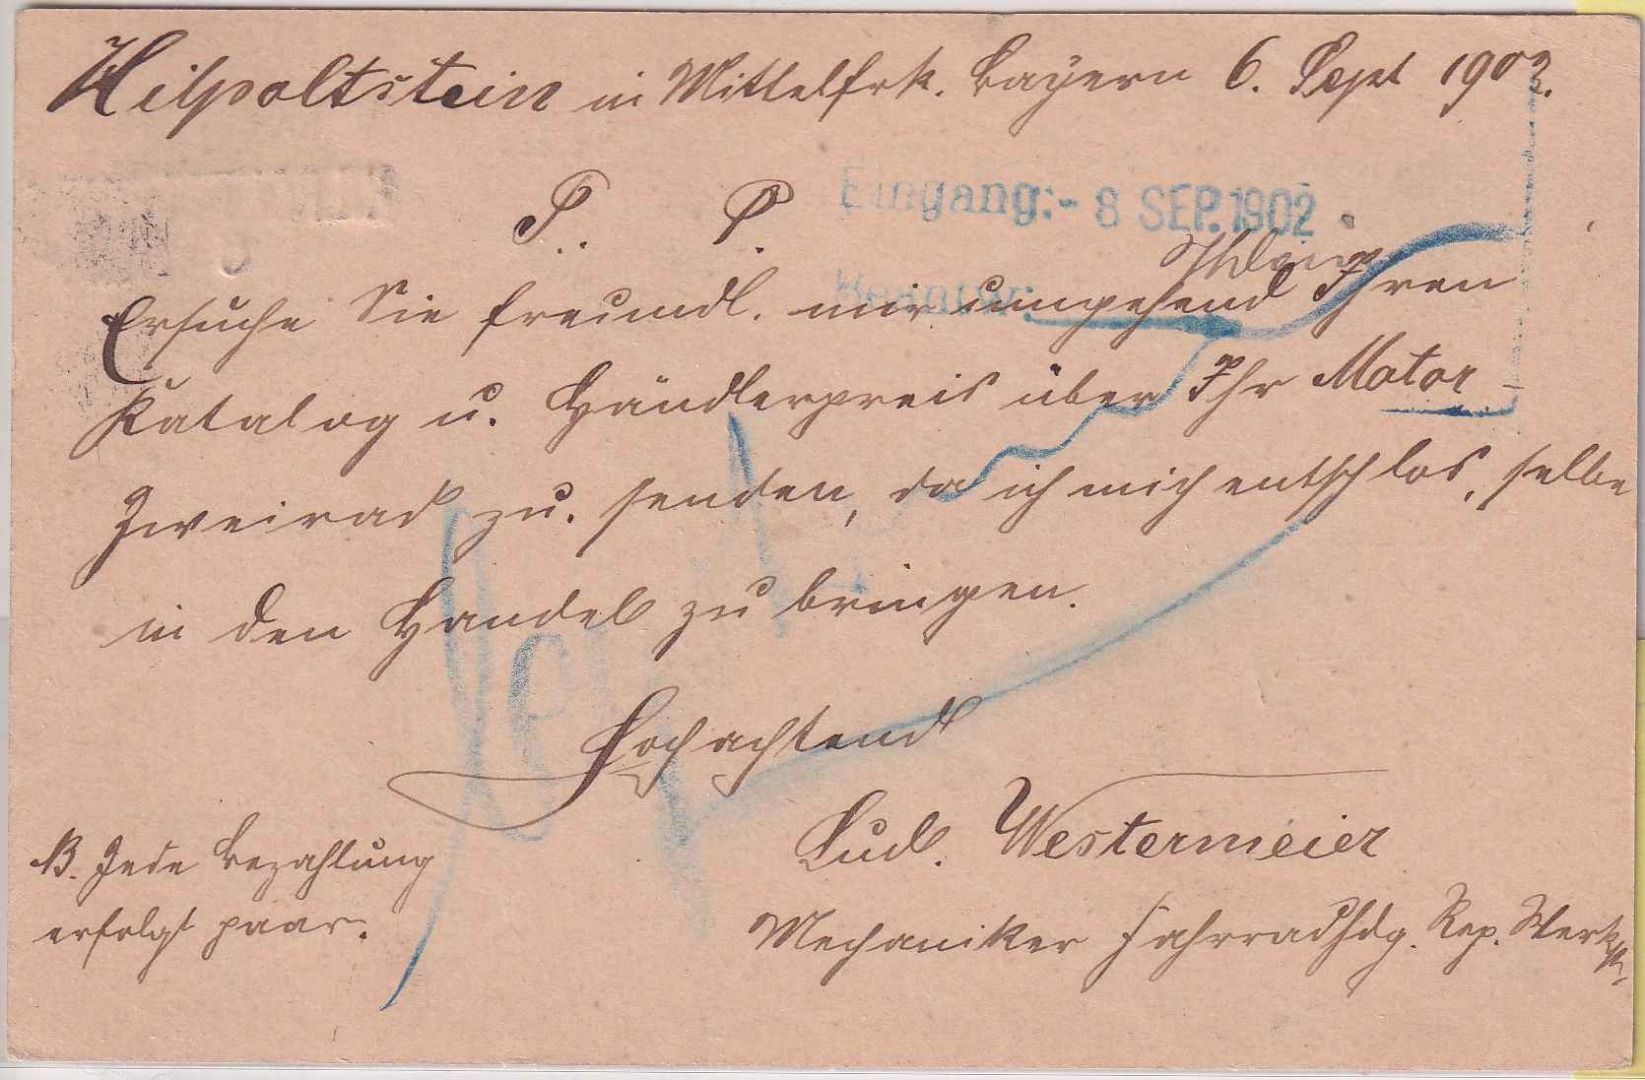 Hilpoltstein in Mittelfrk. Bayern 6. Sept 1902.
P. P.
Eingang: - 8 SEP. 1902
Ersuche Sie freundl. mir umgehend Ihren
Katalog u. Händlerpreis über Ihr Motor
Zweirad zu. senden, da ich mich entschlos, selbe
in den Handel zu bringen.
Hochachtend
Ludw. Westermeier
Mechaniker Fahrradhdg. Rep. Werkst.
NB. Jede Bezahlung
erfolgt paar.